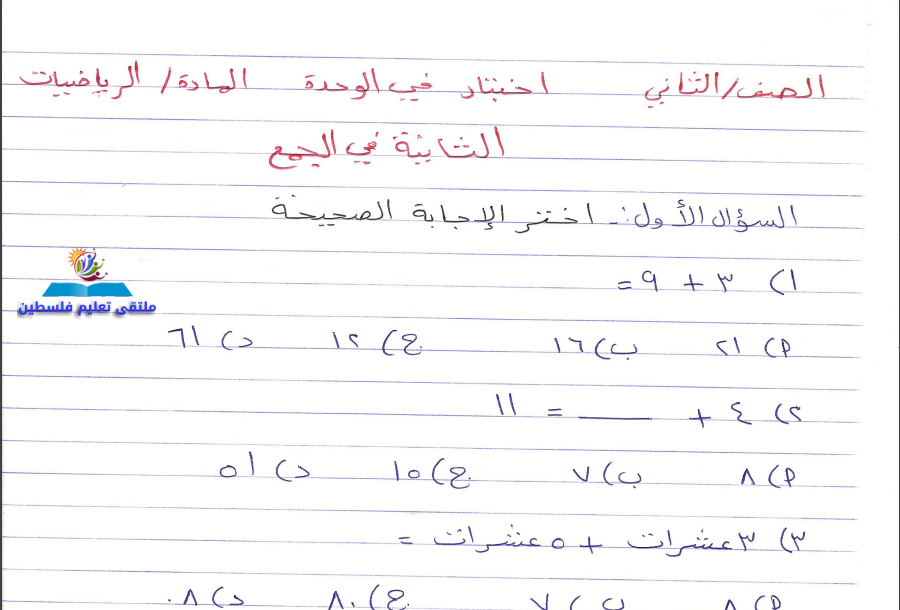 الصف/الثاني اختبار في الوحدة المادة/ الرياضيات
الثانية في الجمع
السؤال الأول:- اختر الإجابة الصحيحة
١) ٣ + ٩ =
ملتقى تعليم فلسطين
أ) ٢١ ب) ١٦ ج) ١٢ د) ٦١
٢) ٤ + ____ = ١١
أ) ٨ ب) ٧ ج) ١٥ د) ٥١
٣) ٣ عشرات + ٥ عشرات =
أ) ٨ ب) ٧ ج) ٨٠ د) ٠٨